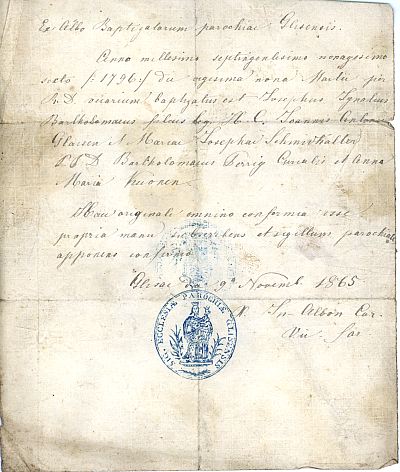 Ex Albo Baptizatorum parochiae Glisensis.
Anno millesimo septingentesimo nonagesimo
sexto /:1796:/ die vigesima nona Martii per
R. D. vicarium baptizatus est Josephus Ignatius
Bartholomaeus filius H. C. Joannis Antonii
Glaisen et Mariae Josephae Schmidhalter
P.P. D. Bartholomaeus Perrig Curialis et Anna
Maria Kuonen.
Haec originali omnino conformia esse
propria manu subscribens et sigillum parochiale
apponens confirmo
Glisae die 9a Novemb. 1865
In Albon Car.
Vic. Sac
SIG. ECCLESIÆ PAROCHIÆ GLISENSIS